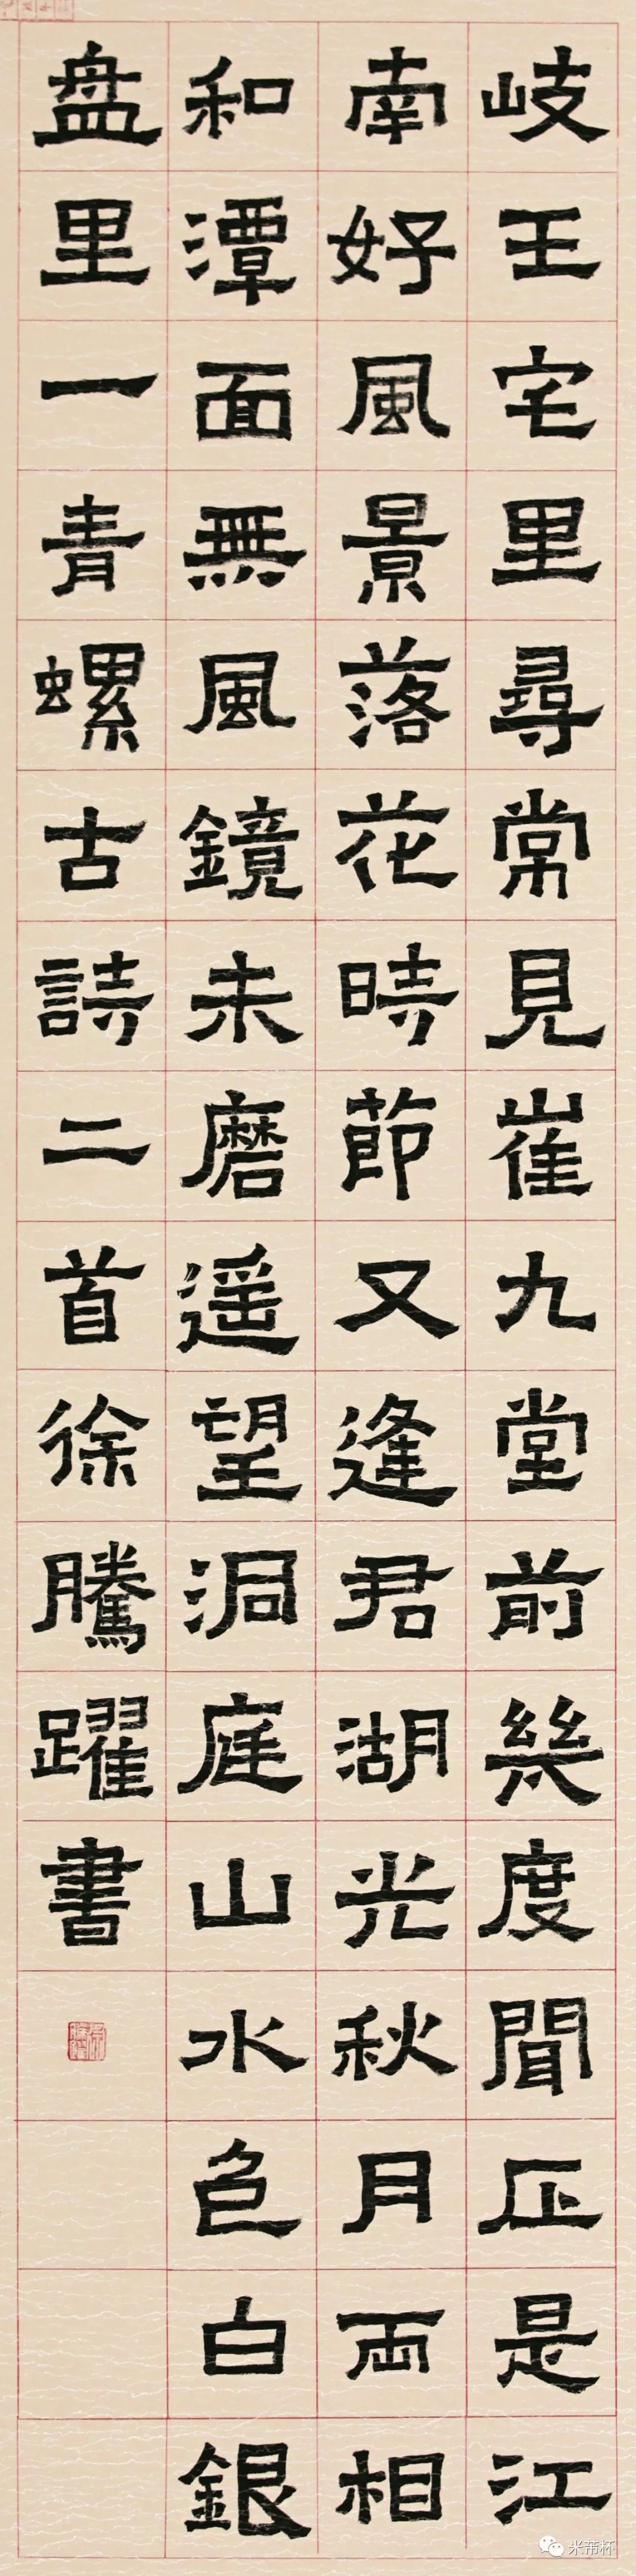 岐王宅里尋常見崔九堂前幾度聞正是江
南好風景落花時節又逢君湖光秋月兩相
和潭面無風鏡未磨遥望洞庭山水色白銀
盘里一青螺古詩二首徐騰躍書
米芾杯